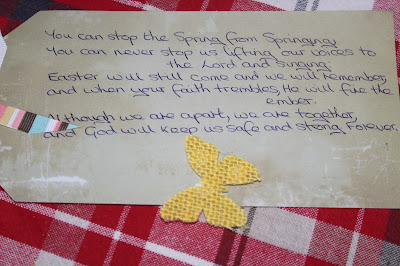 You can stop the Spring from Springing,
You can never stop us lifting our voices to
the Lord and singing.
Easter will still come and we will remember,
and when your faith trembles, He will fire the
ember.
Although we are apart, we are together,
and God will keep us safe and strong forever.